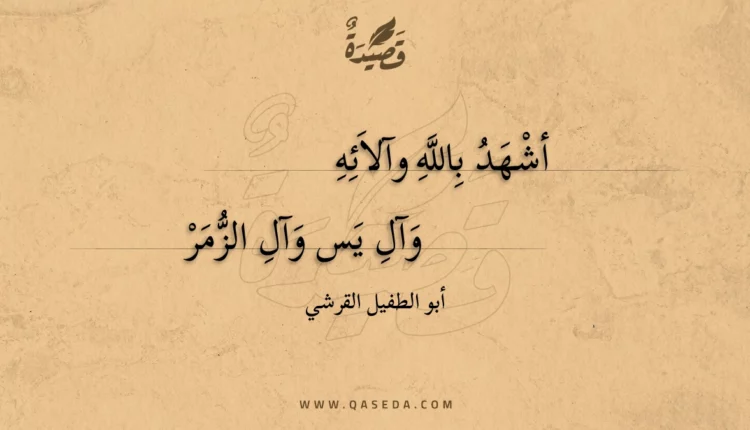 قَصِيْدَةٌ
أشْهَدُ بِاللَّهِ وآلاَئِهِ
وَآلِ يَس وَآلِ الزُّمَرْ
أبو الطفيل القرشي
WWW.QASEDA.COM